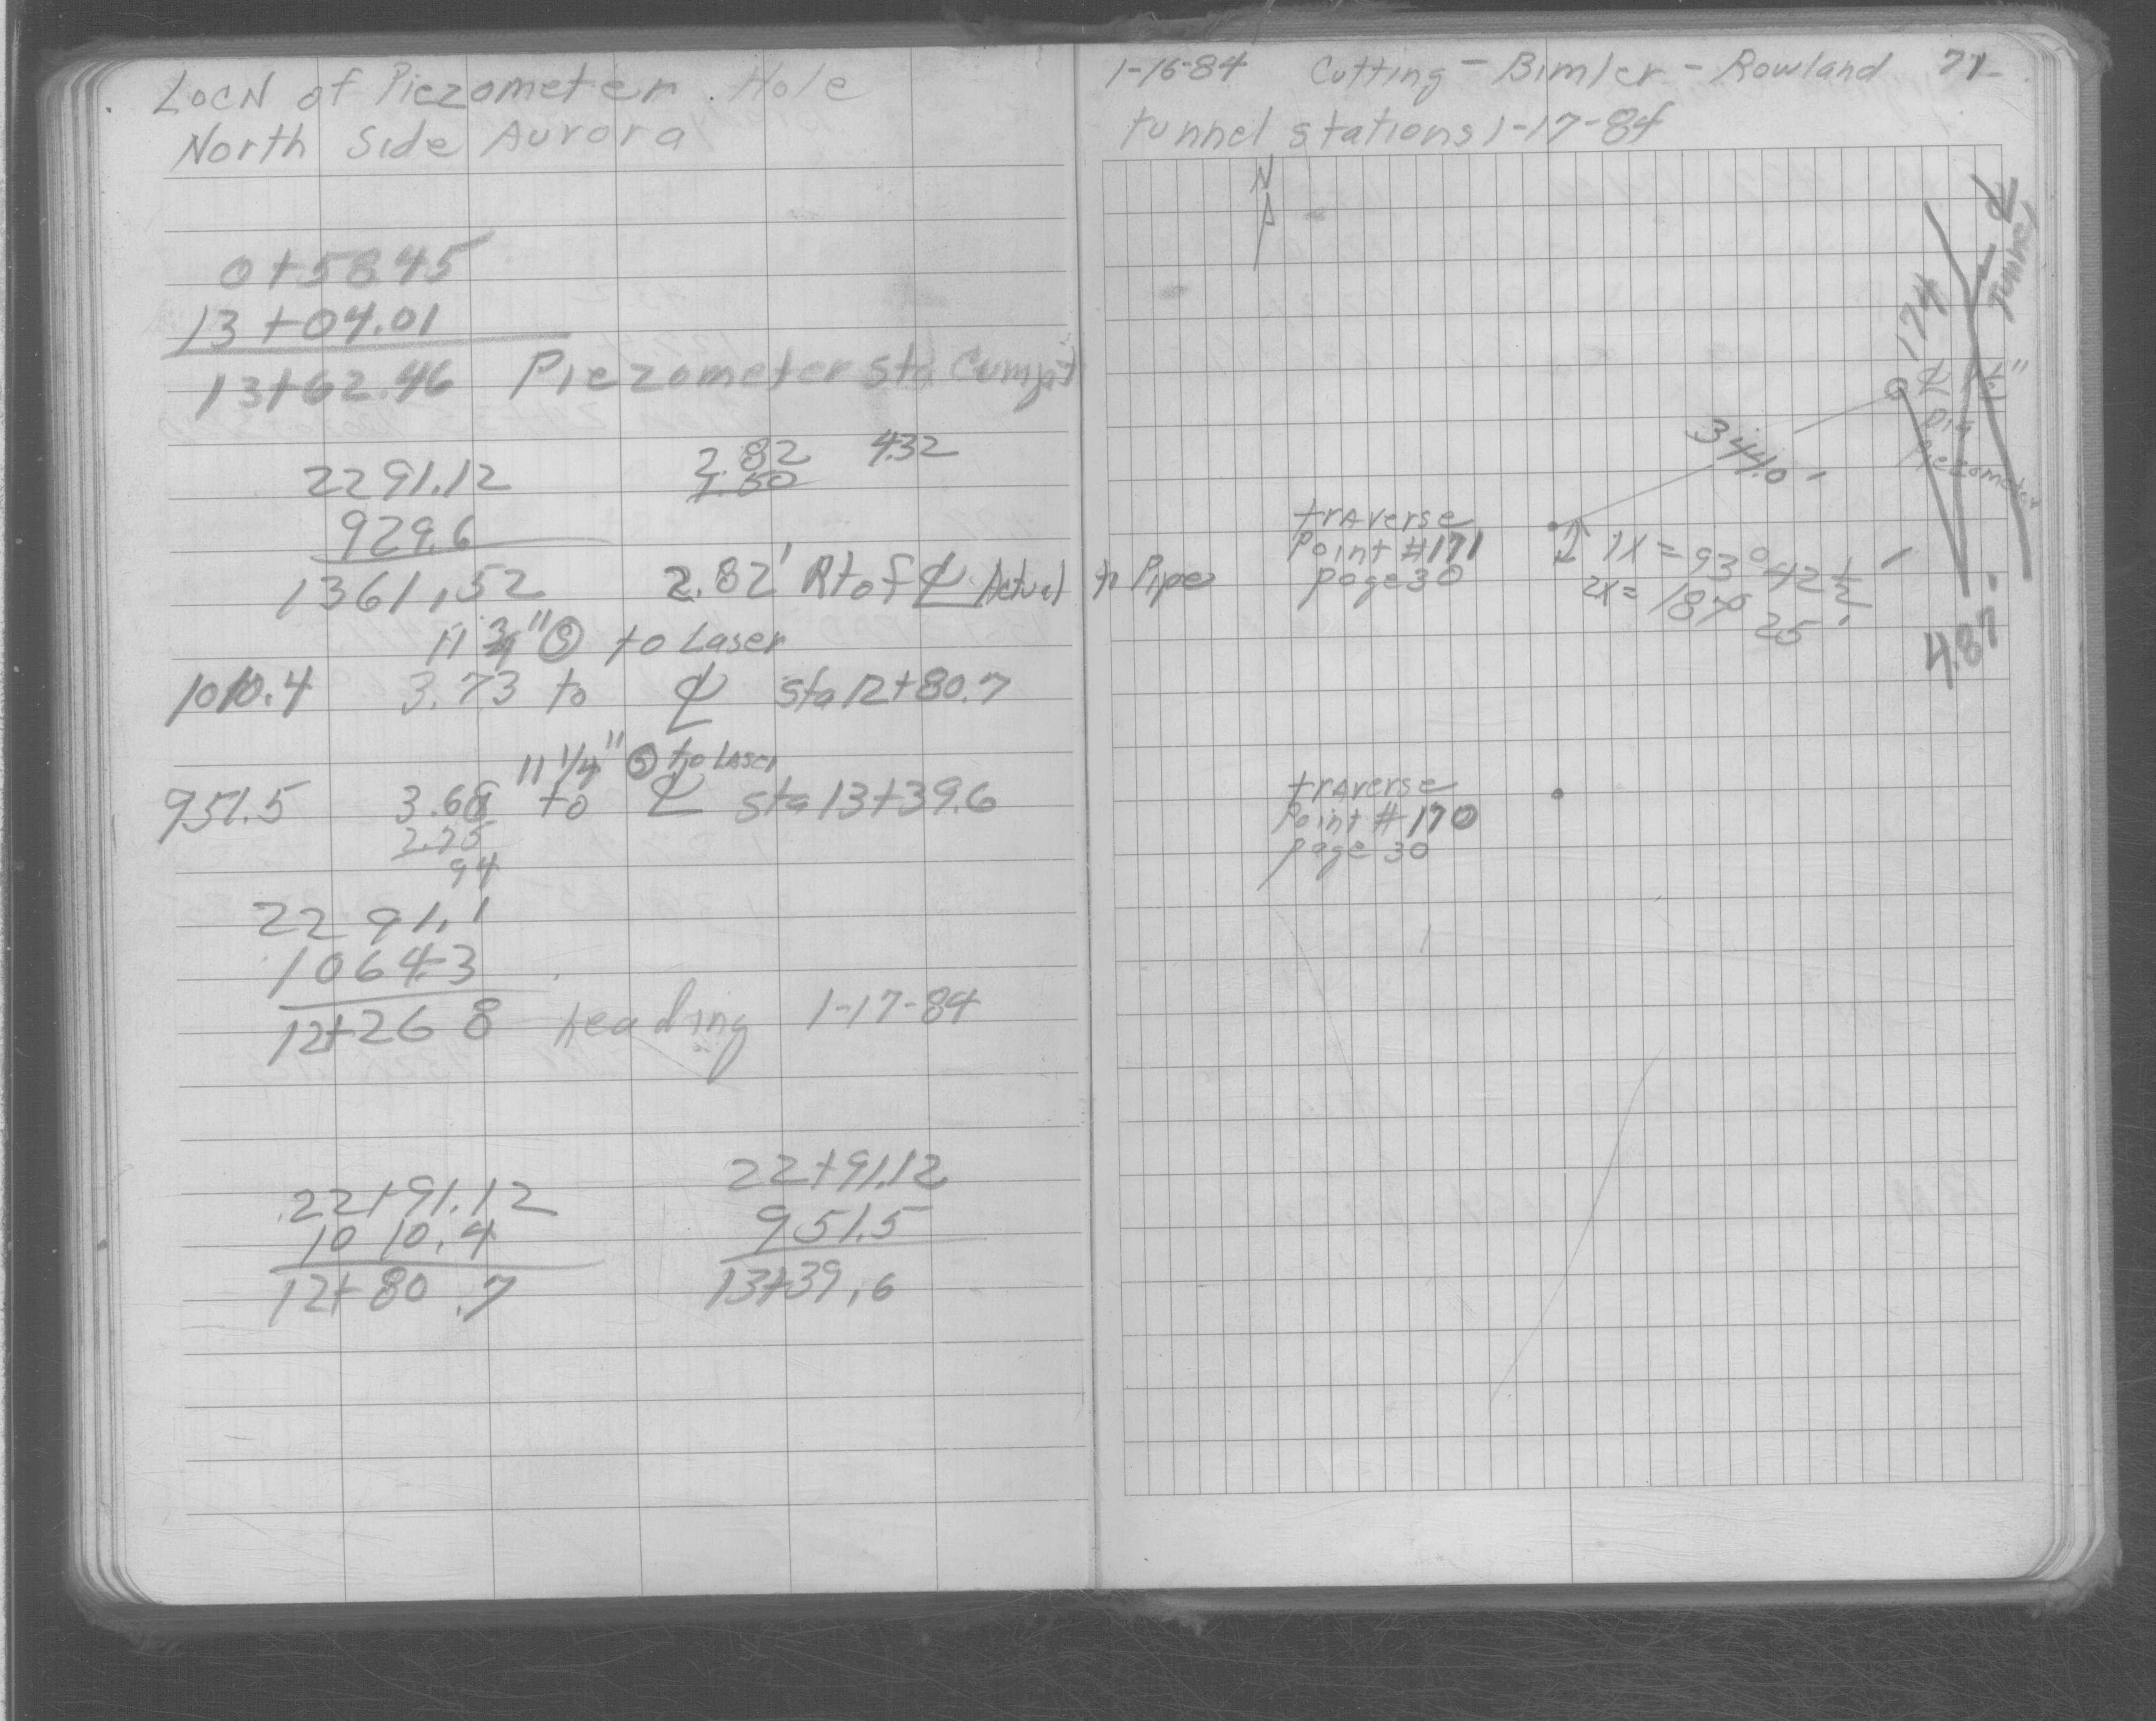 Locn of Piezometer Hole
North Side Aurora
0+58.45
13+04.01
13+62.46 Piezometer sta Comp't
2291.12 2.82 4.32
929.6 1.50
1361.52 2.82' Rt of ℄ Actual to Pipe
11 3/4" Ⓢ to Laser
1010.4 3.73 to ℄ sta 12+80.7
11 1/4" Ⓢ to Laser
951.5 3.68 to ℄ sta 13+39.6
2.75
94
2291.1
1064.3
12+26 8 Heading 1-17-84
22+91.12 22+91.12
1010.4 951.5
12+80.7 13+39.6
1-16-84 Cutting - Bimler - Rowland 71
tunnel stations 1-17-84
N
℄
Tunnel
174
℄
Dia
Piezometer
344.0
traverse
Point #171
page 30
1X = 93° 42 1/2'
2X = 187° 25'
4.87
traverse
Point #170
page 30